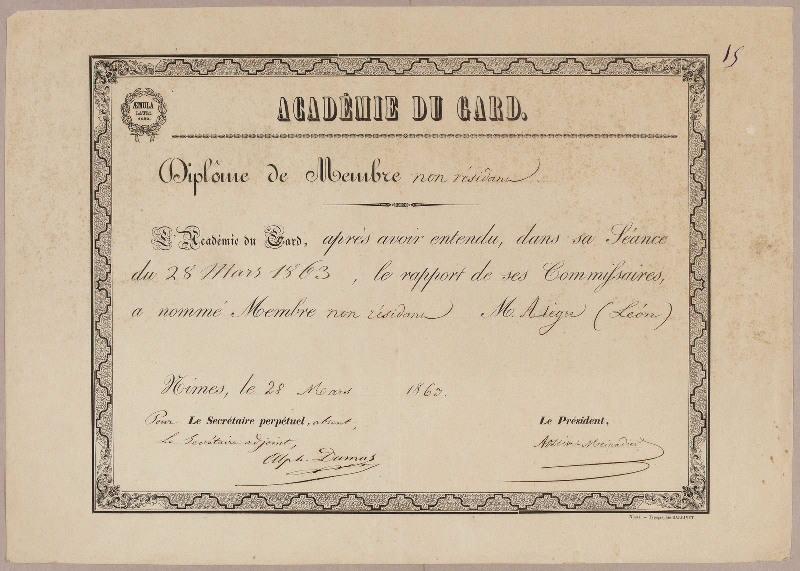 15
ÆMULA
LAURI
ACADÉMIE DU GARD.
Diplôme de Membre non résidant
L'Académie du Gard, après avoir entendu, dans sa Séance
du 28 Mars 1863, le rapport de ses Commissaires,
a nommé Membre non résidant M. Alègre (Léon)
Nimes, le 28 Mars 1863.
Pour Le Secrétaire perpétuel, absent,
Le Président,
Le Secrétaire adjoint,
Alph. Dumas
Nimes. — Typographie BALLIVET.